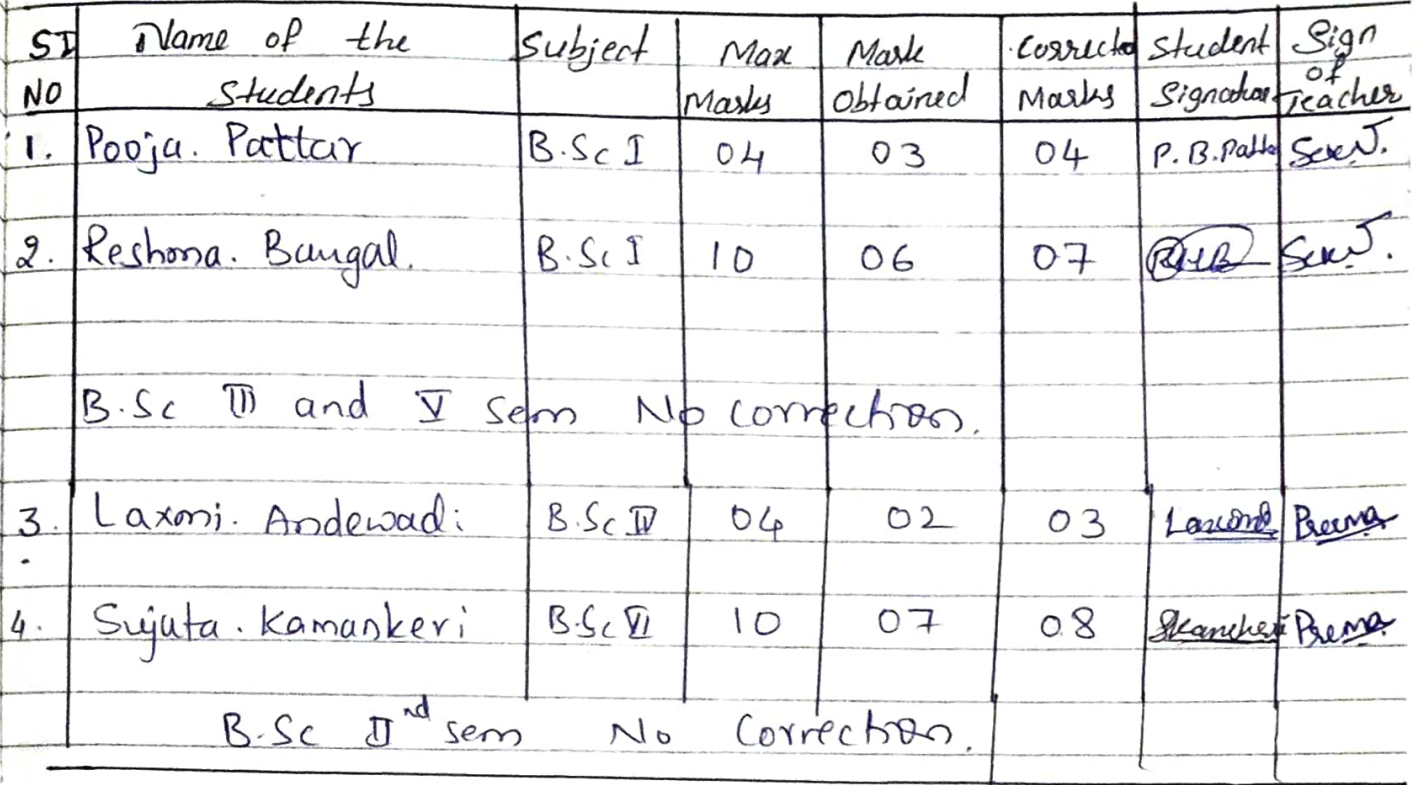 SI NO Name of the Students Subject Max Marks Mark Obtained Corrected Marks Student Signature Sign of Teacher
1. Pooja. Pattar B.Sc I 04 03 04 P. B. Patta
2. Reshma. Bangal. B.Sc I 10 06 07
B.Sc III and V sem No correction.
3. Laxmi. Andewadi B.Sc IV 04 02 03 Prema
4. Sujata. Kamankeri B.Sc VI 10 07 08 Prema
B.Sc IInd sem No Correction.